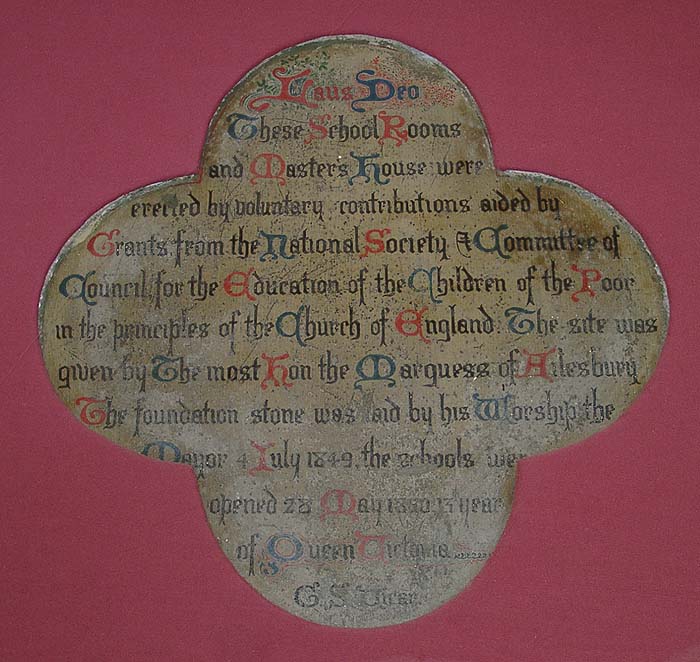 Laus Deo
These School Rooms
and Masters House were
erected by voluntary contributions aided by
Grants from the National Society & Committee of
Council for the Education of the Children of the Poor
in the principles of the Church of England. The site was
given by The most Hon the Marquess of Ailesbury
The foundation stone was laid by his Worship the
Mayor 4 July 1849, the schools were
opened 28 May 1850, 13 year
of Queen Victoria
G. S. Vicar